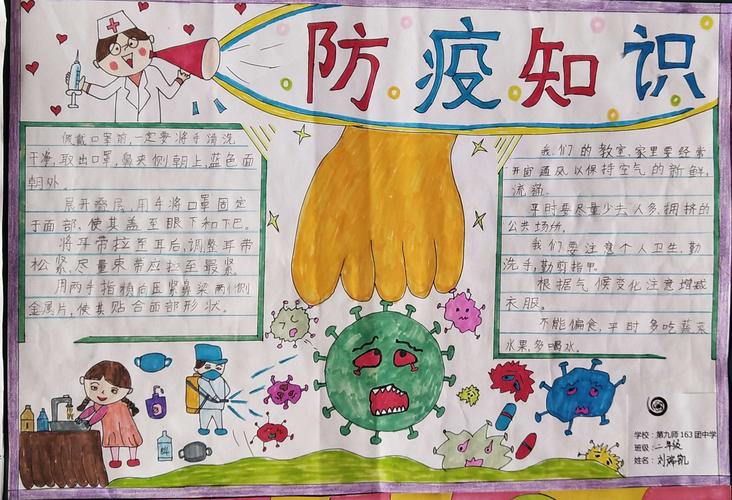 防疫知识
佩戴口罩前,一定要将手清洗
干净,取出口罩,鼻夹侧朝上,蓝色面
朝外。
展开叠层,用手将口罩固定
于面部,使其盖至眼下和下巴。
将耳带拉至耳后,调整耳带
松紧,尽量束带应拉至最紧。
用两手指稍后压紧鼻梁两侧
金属片,使其贴合面部形状。
我们的教室、家里要经常
开窗通风以保持空气的新鲜,
流畅。
平时要尽量少去人多、拥挤的
公共场所。
我们要注意个人卫生,勤
洗手,勤剪指甲。
根据气候变化注意增减
衣服。
不能偏食,平时多吃蔬菜
水果,多喝水。
学校:第九师163团中学
班级:二年级
姓名:刘